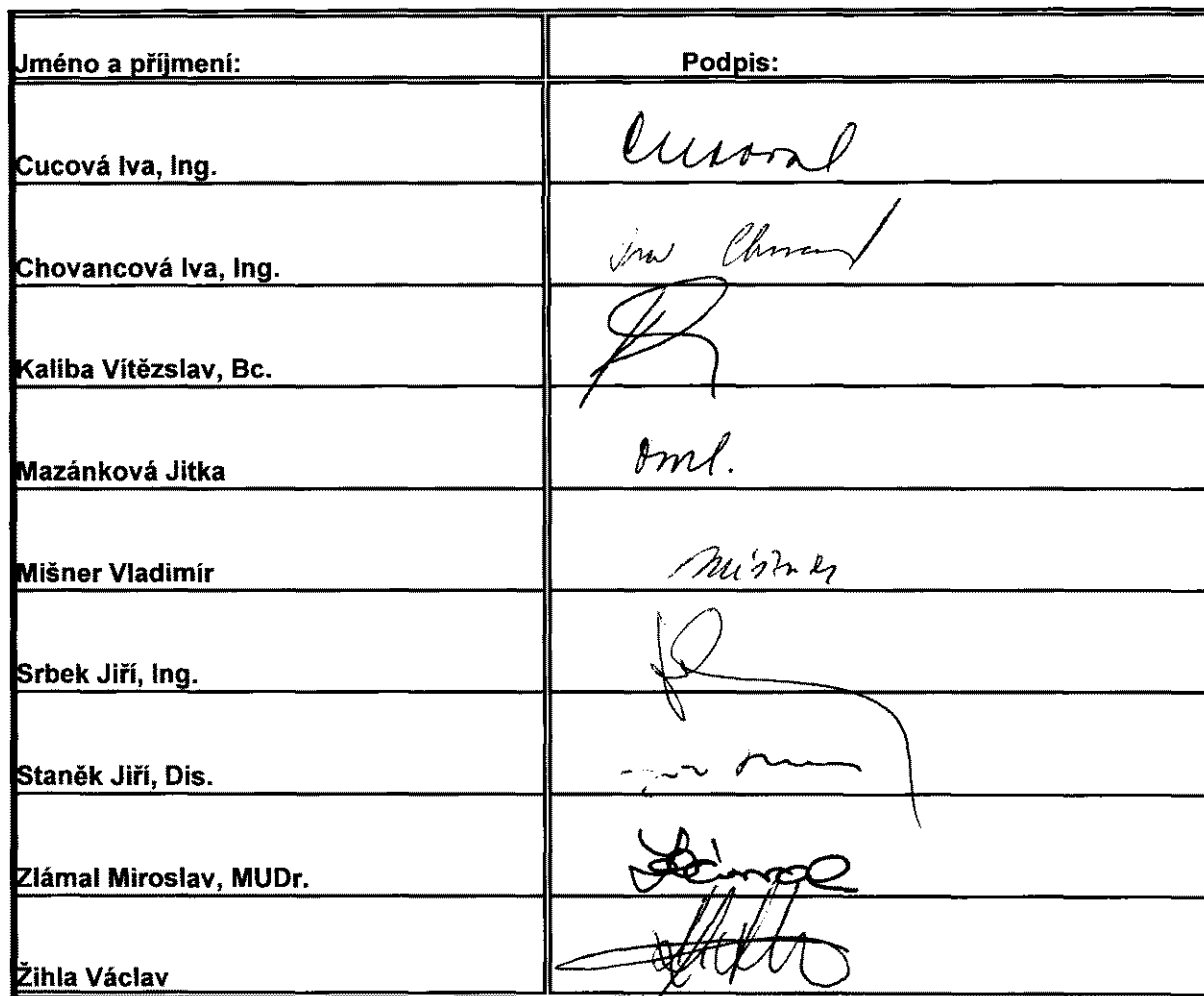 Jméno a příjmení: Podpis:
Cucová Iva, Ing. Cucová
Chovancová Iva, Ing.
Kaliba Vítězslav, Bc.
Mazánková Jitka oml.
Mišner Vladimír Mišner
Srbek Jiří, Ing.
Staněk Jiří, Dis.
Zlámal Miroslav, MUDr. Zlámal
Žihla Václav